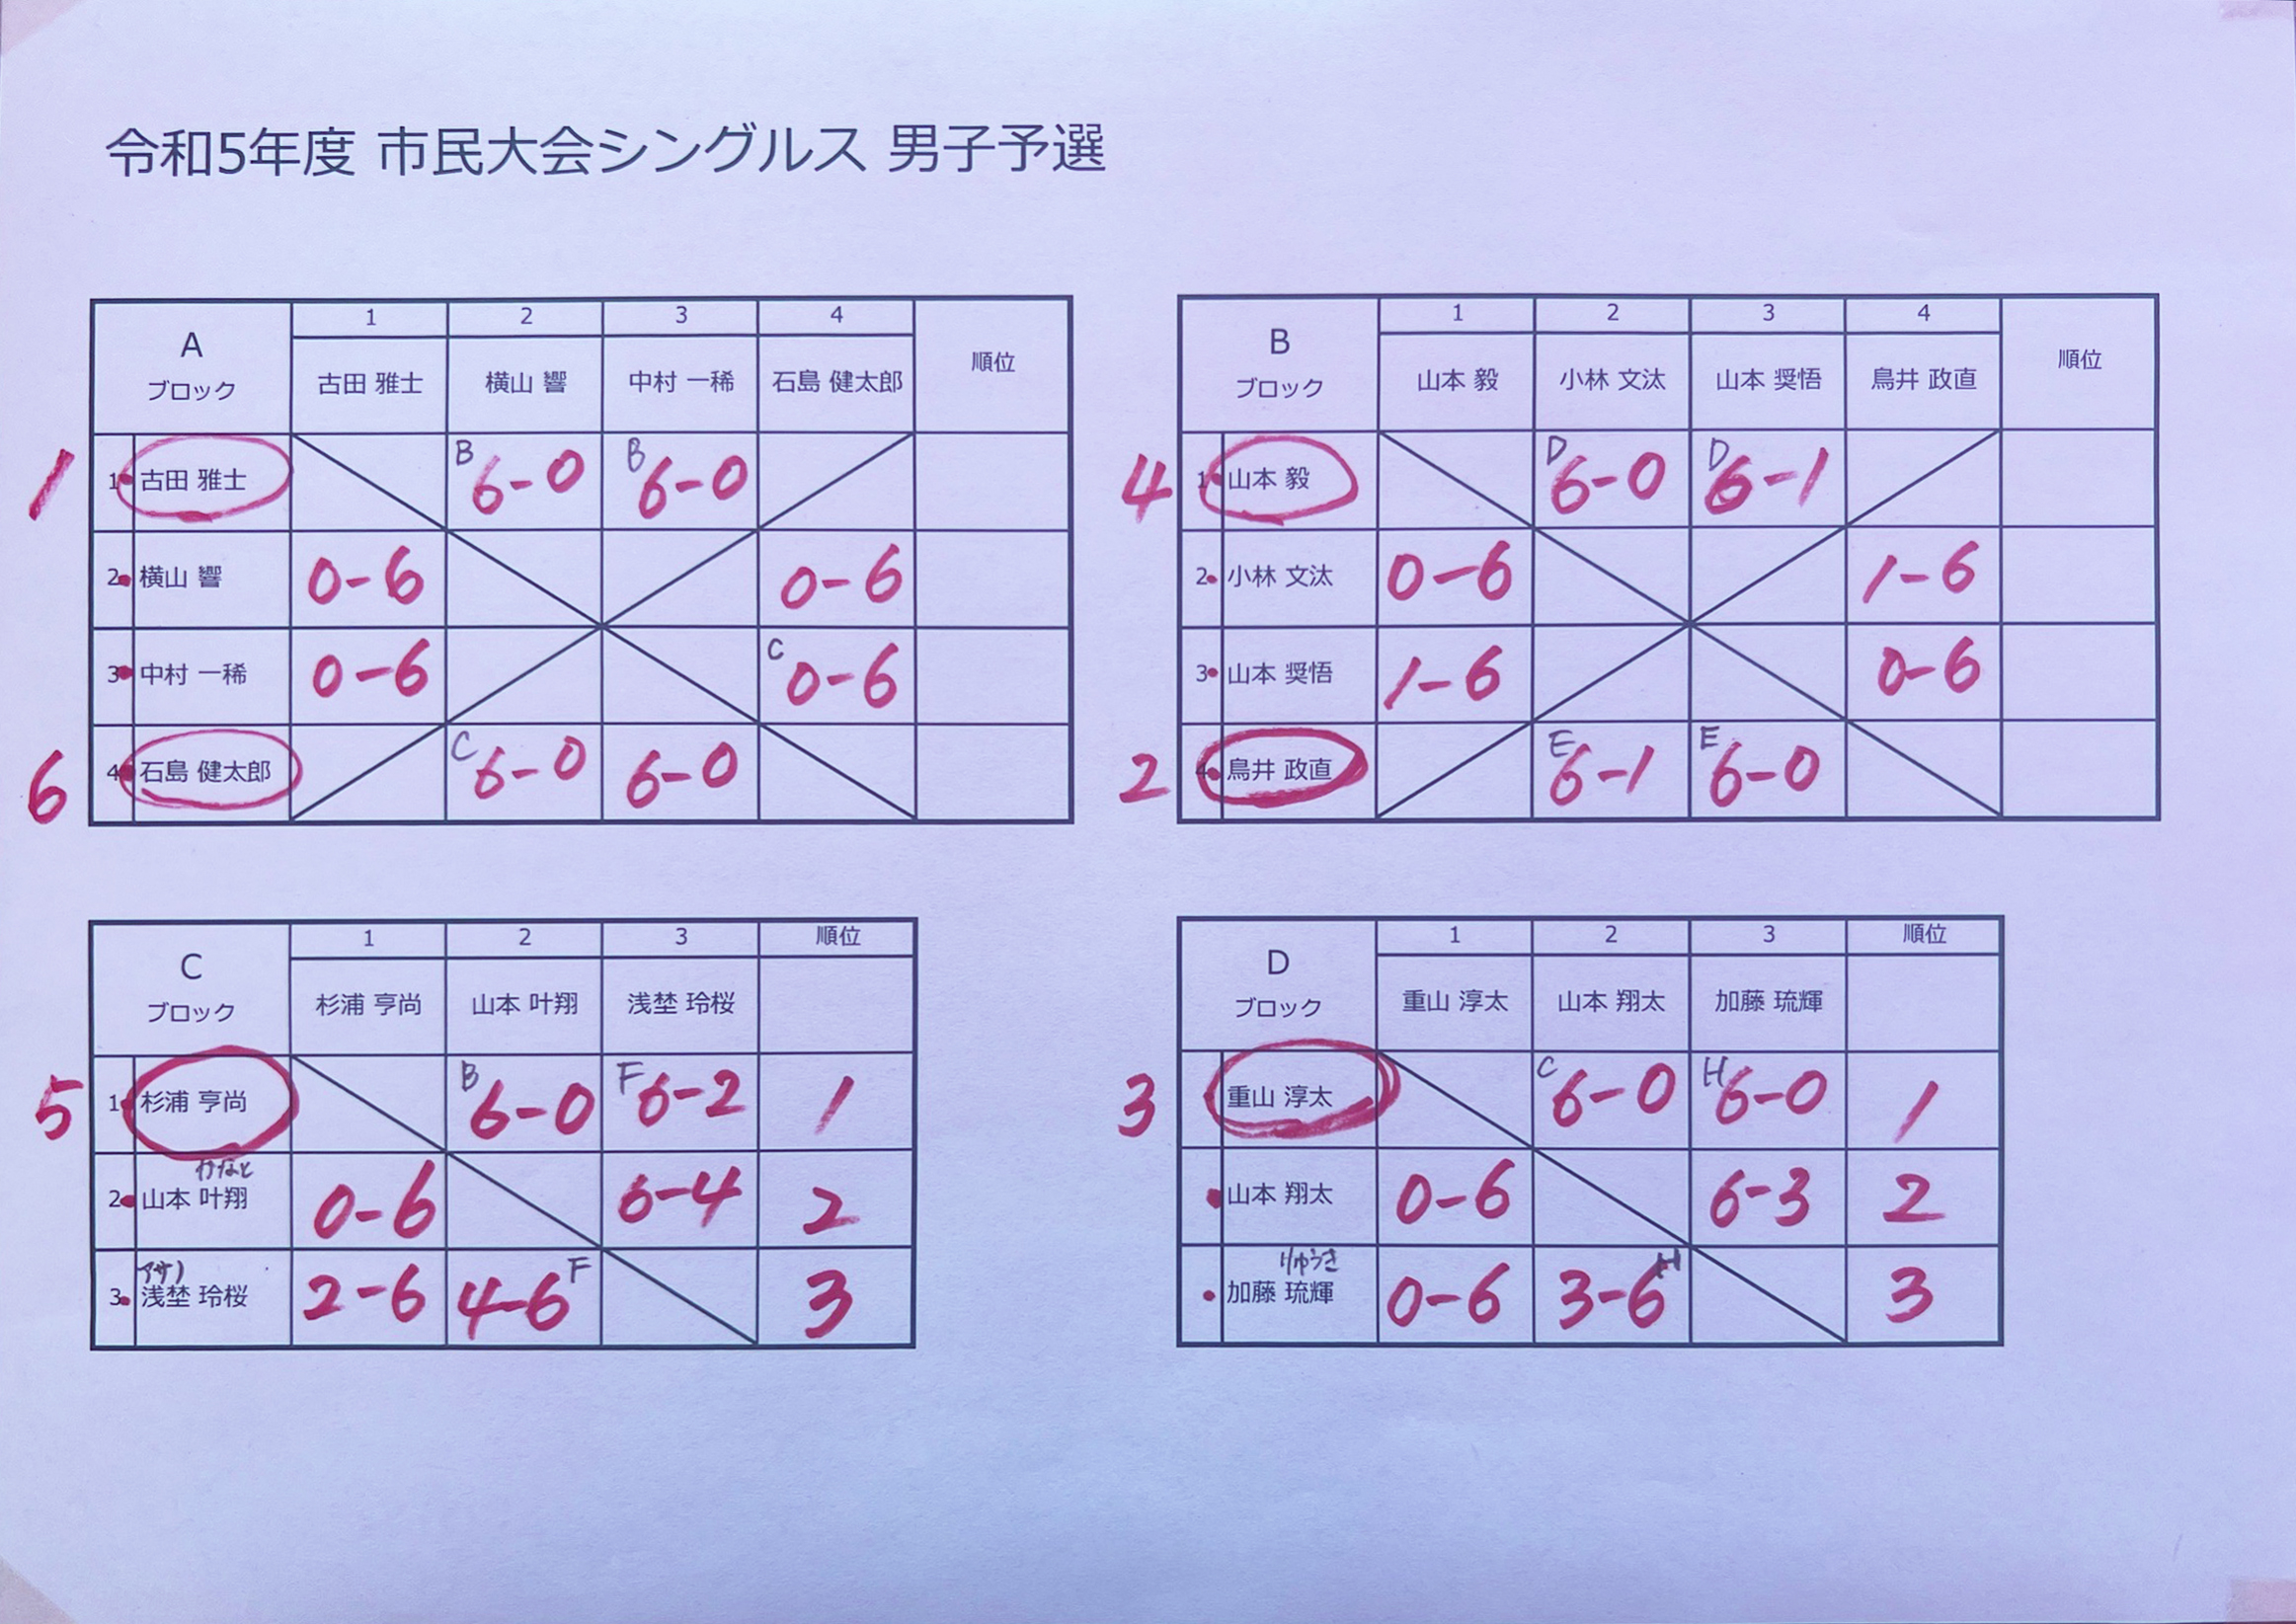 令和5年度 市民大会シングルス 男子予選
A ブロック 1 2 3 4 順位
古田 雅士 横山 響 中村 一稀 石島 健太郎
1 1 古田 雅士 B 6-0 B 6-0
2 横山 響 0-6 0-6
3 中村 一稀 0-6 C 0-6
6 4 石島 健太郎 C 6-0 6-0
B ブロック 1 2 3 4 順位
山本 毅 小林 文汰 山本 奨悟 鳥井 政直
4 1 山本 毅 D 6-0 D 6-1
2 小林 文汰 0-6 1-6
3 山本 奨悟 1-6 0-6
2 4 鳥井 政直 E 6-1 E 6-0
C ブロック 1 2 3 順位
杉浦 亨尚 山本 叶翔 浅埜 玲桜
5 1 杉浦 亨尚 B 6-0 F 6-2 1
かなと
2 山本 叶翔 0-6 6-4 2
アサノ
3 浅埜 玲桜 2-6 4-6 F 3
D ブロック 1 2 3 順位
重山 淳太 山本 翔太 加藤 琉輝
3 重山 淳太 C 6-0 H 6-0 1
山本 翔太 0-6 6-3 2
りゅうき
加藤 琉輝 0-6 3-6 H 3